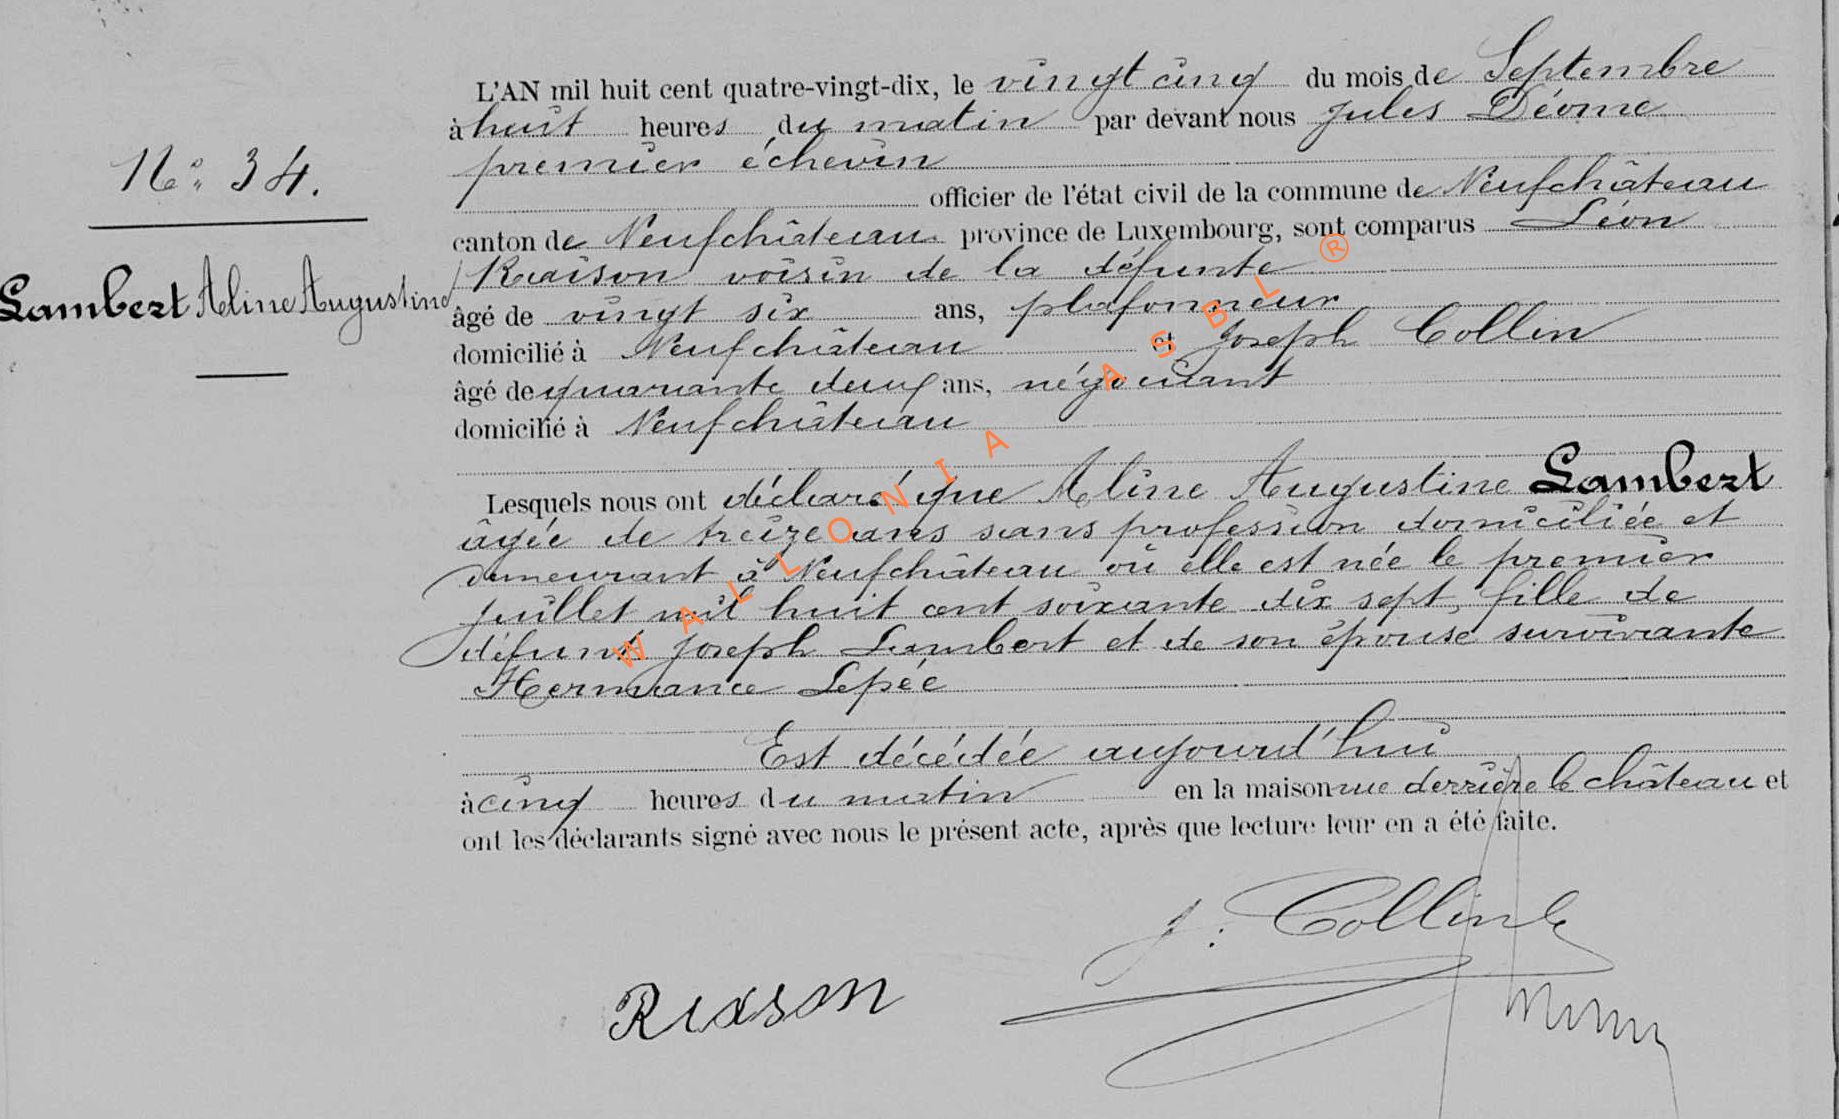 N° 34.
Lambert Aline Augustine
L'AN mil huit cent quatre-vingt-dix, le vingt cinq du mois de Septembre
à huit heures du matin par devant nous Jules Déome
premier échevin
officier de l'état civil de la commune de Neufchâteau
canton de Neufchâteau province de Luxembourg, sont comparus Léon
Raison voisin de la défunte
âgé de vingt six ans, plafonneur
domicilié à Neufchâteau et Joseph Collin
âgé de quarante deux ans, négociant
domicilié à Neufchâteau
Lesquels nous ont déclaré que Aline Augustine Lambert
âgée de treize ans sans profession domiciliée et
demeurant à Neufchâteau où elle est née le premier
juillet mil huit cent soixante dix sept, fille de
défunt Joseph Lambert et de son épouse survivante
Hermance Lepée
Est décédée aujourd'hui
à cinq heures du matin en la maison rue derrière le château et
ont les déclarants signé avec nous le présent acte, après que lecture leur en a été faite.
J. Collin
WALLONIA ASBL ®